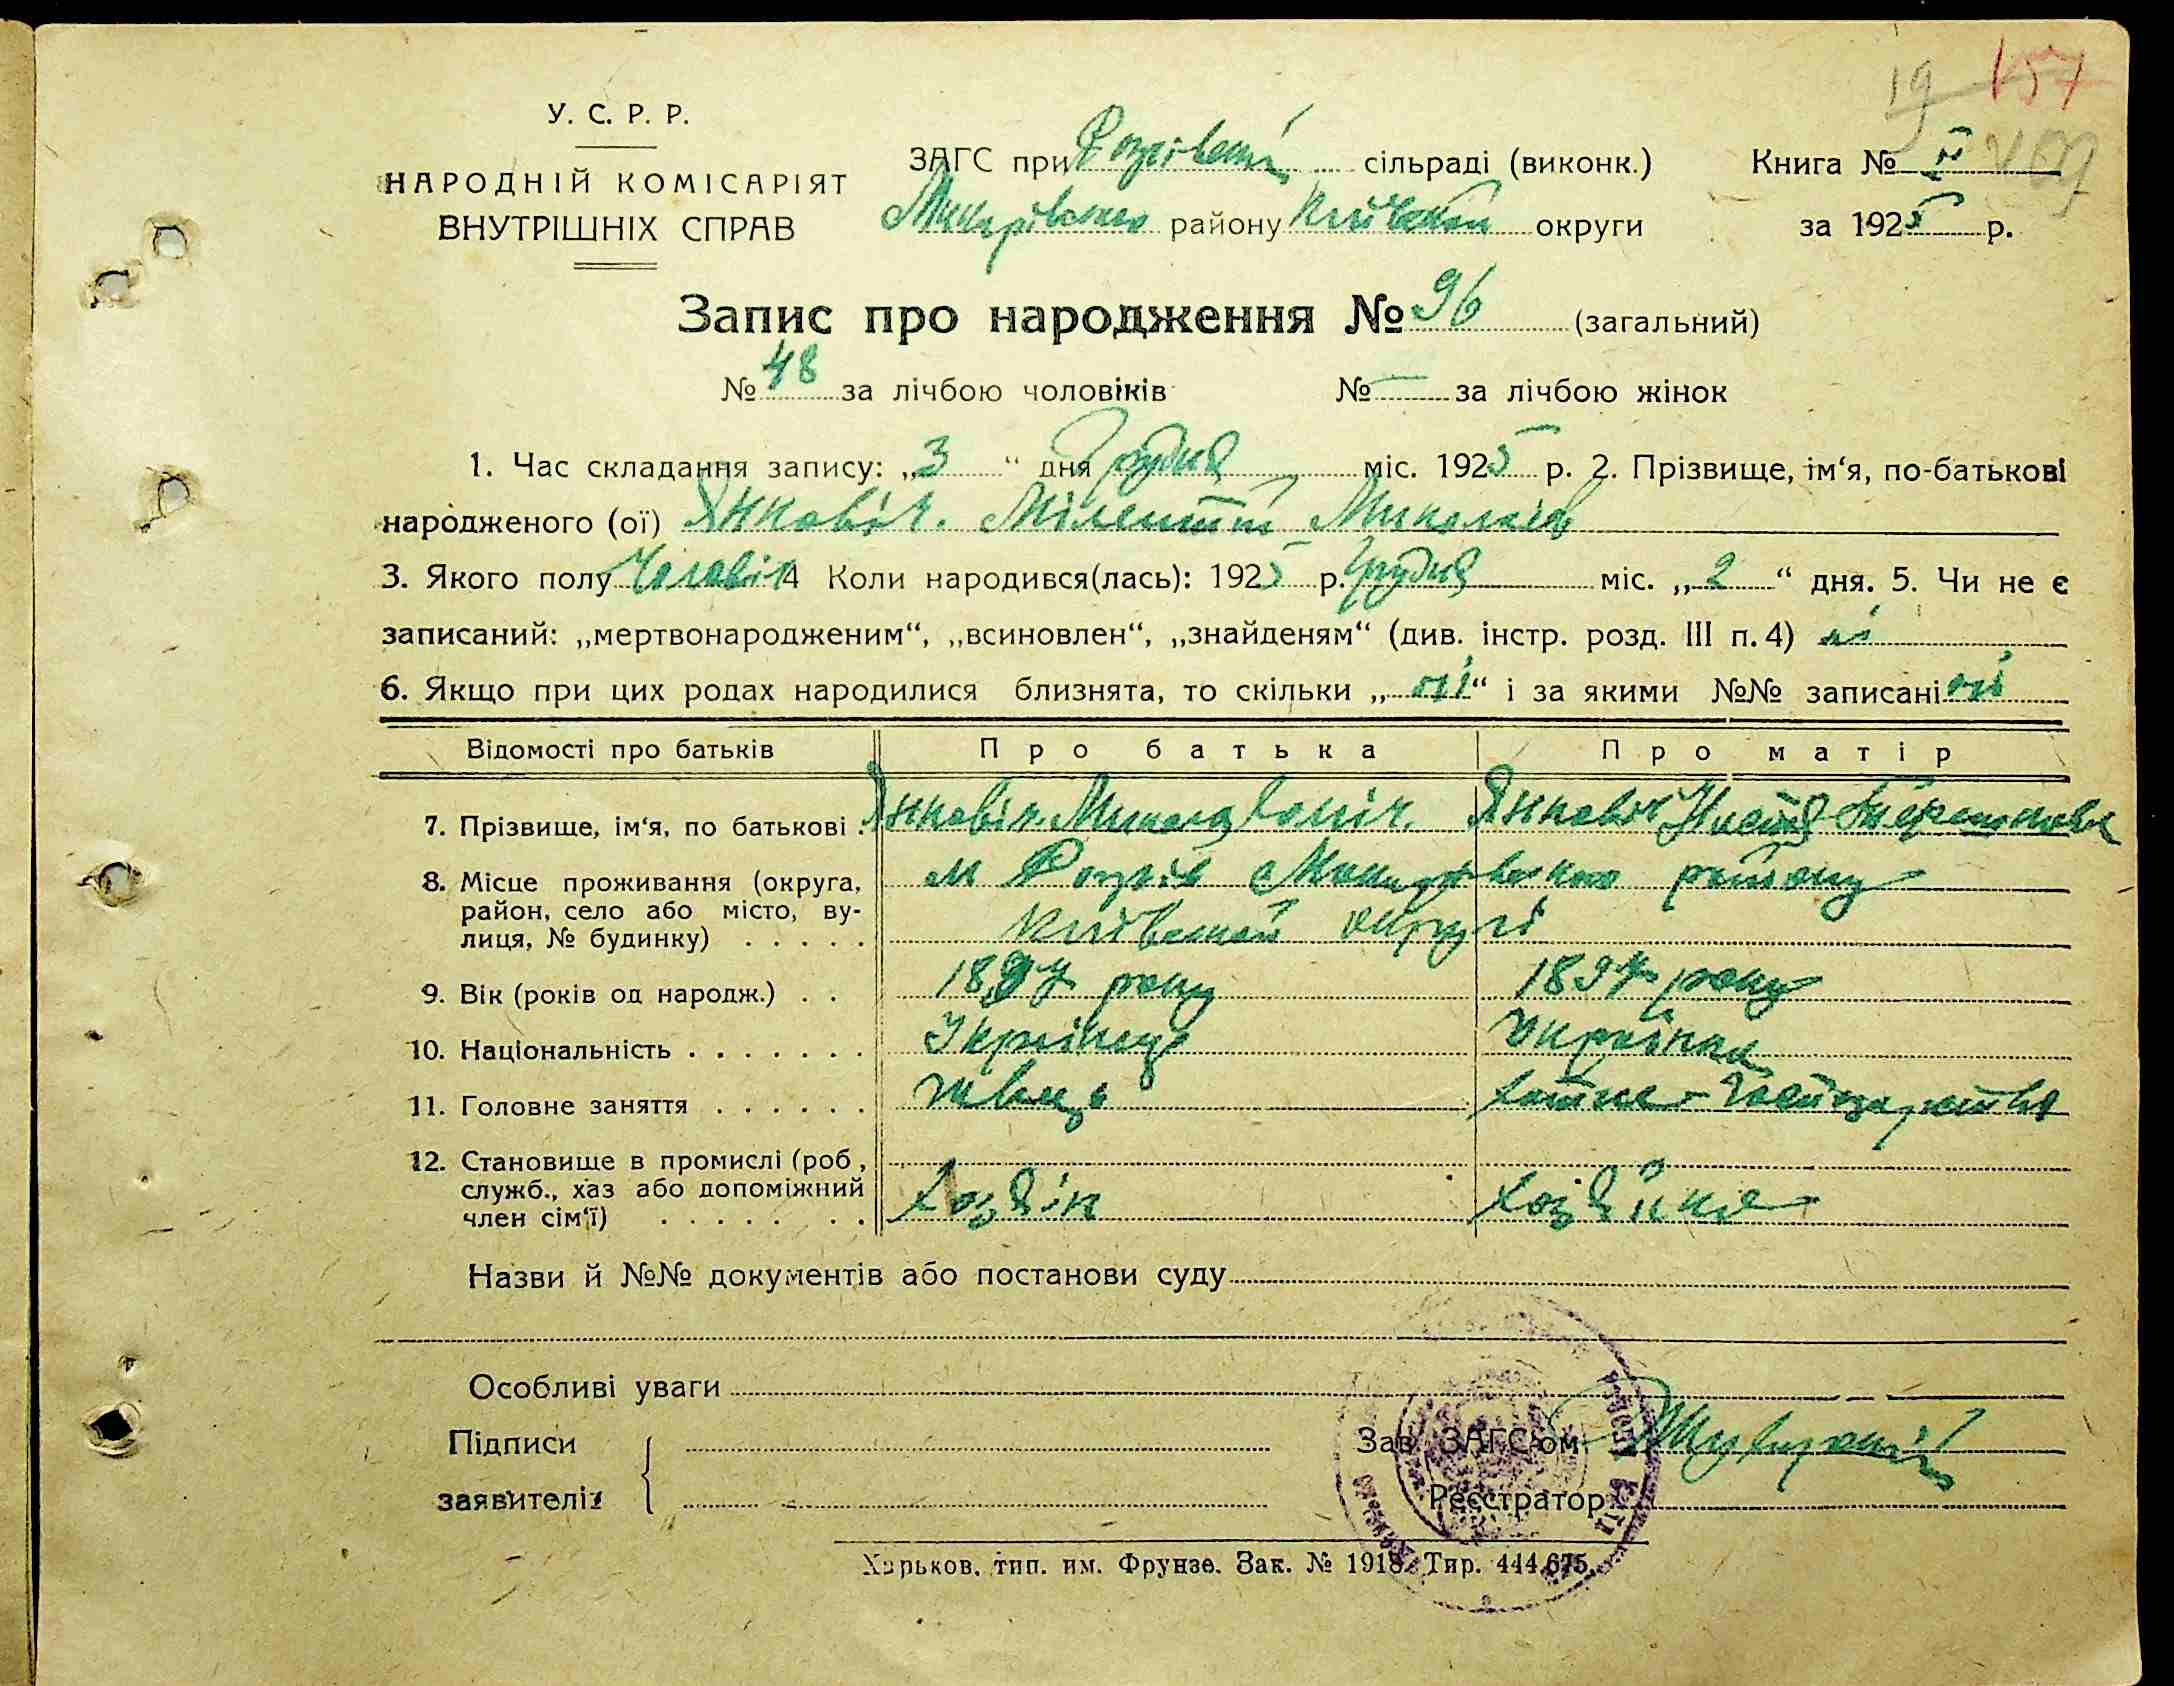 19 157
У. С. Р. Р.
НАРОДНІЙ КОМІСАРІЯТ
ВНУТРІШНІХ СПРАВ
ЗАГС при Фозрівській сільраді (виконк.)
Макарівського району Київської округи
Книга № II
за 1925 р.
Запис про народження № 96 (загальний)
№ 48 за лічбою чоловіків № — за лічбою жінок
1. Час складання запису: „3“ дня Грудня міс. 1925 р. 2. Прізвище, ім‘я, по-батькові
народженого (ої) Янковіч. Мілентій Миколаїв
3. Якого полу Чоловік 4 Коли народився(лась): 1925 р. Грудня міс. „2“ дня. 5. Чи не є
записаний: „мертвонародженим“, „всиновлен“, „знайденям“ (див. інстр. розд. III п. 4) ні
6. Якщо при цих родах народилися близнята, то скільки „ні“ і за якими №№ записані ні
Відомості про батьків Про батька Про матір
7. Прізвище, ім‘я, по батькові . Янковіч. Микола Янковіч Настя
8. Місце проживання (округа, район, село або місто, вулиця, № будинку) . . . . . м Фозрів Макарівського району
Київської округи
9. Вік (років од народж.) . . 1897 року 1897 року
10. Національність . . . . . . . Українець Українка
11. Головне заняття . . . . . . Швець хатнє-господарство
12. Становище в промислі (роб, служб., хаз або допоміжний член сім‘ї) . . . . . . . хозяїн хозяйка
Назви й №№ документів або постанови суду
Особливі уваги
Підписи
заявителів
Зав. ЗАГС‘ом
Реєстратор
Харьков, тип. им. Фрунзе. Зак. № 1918. Тир. 444.675.